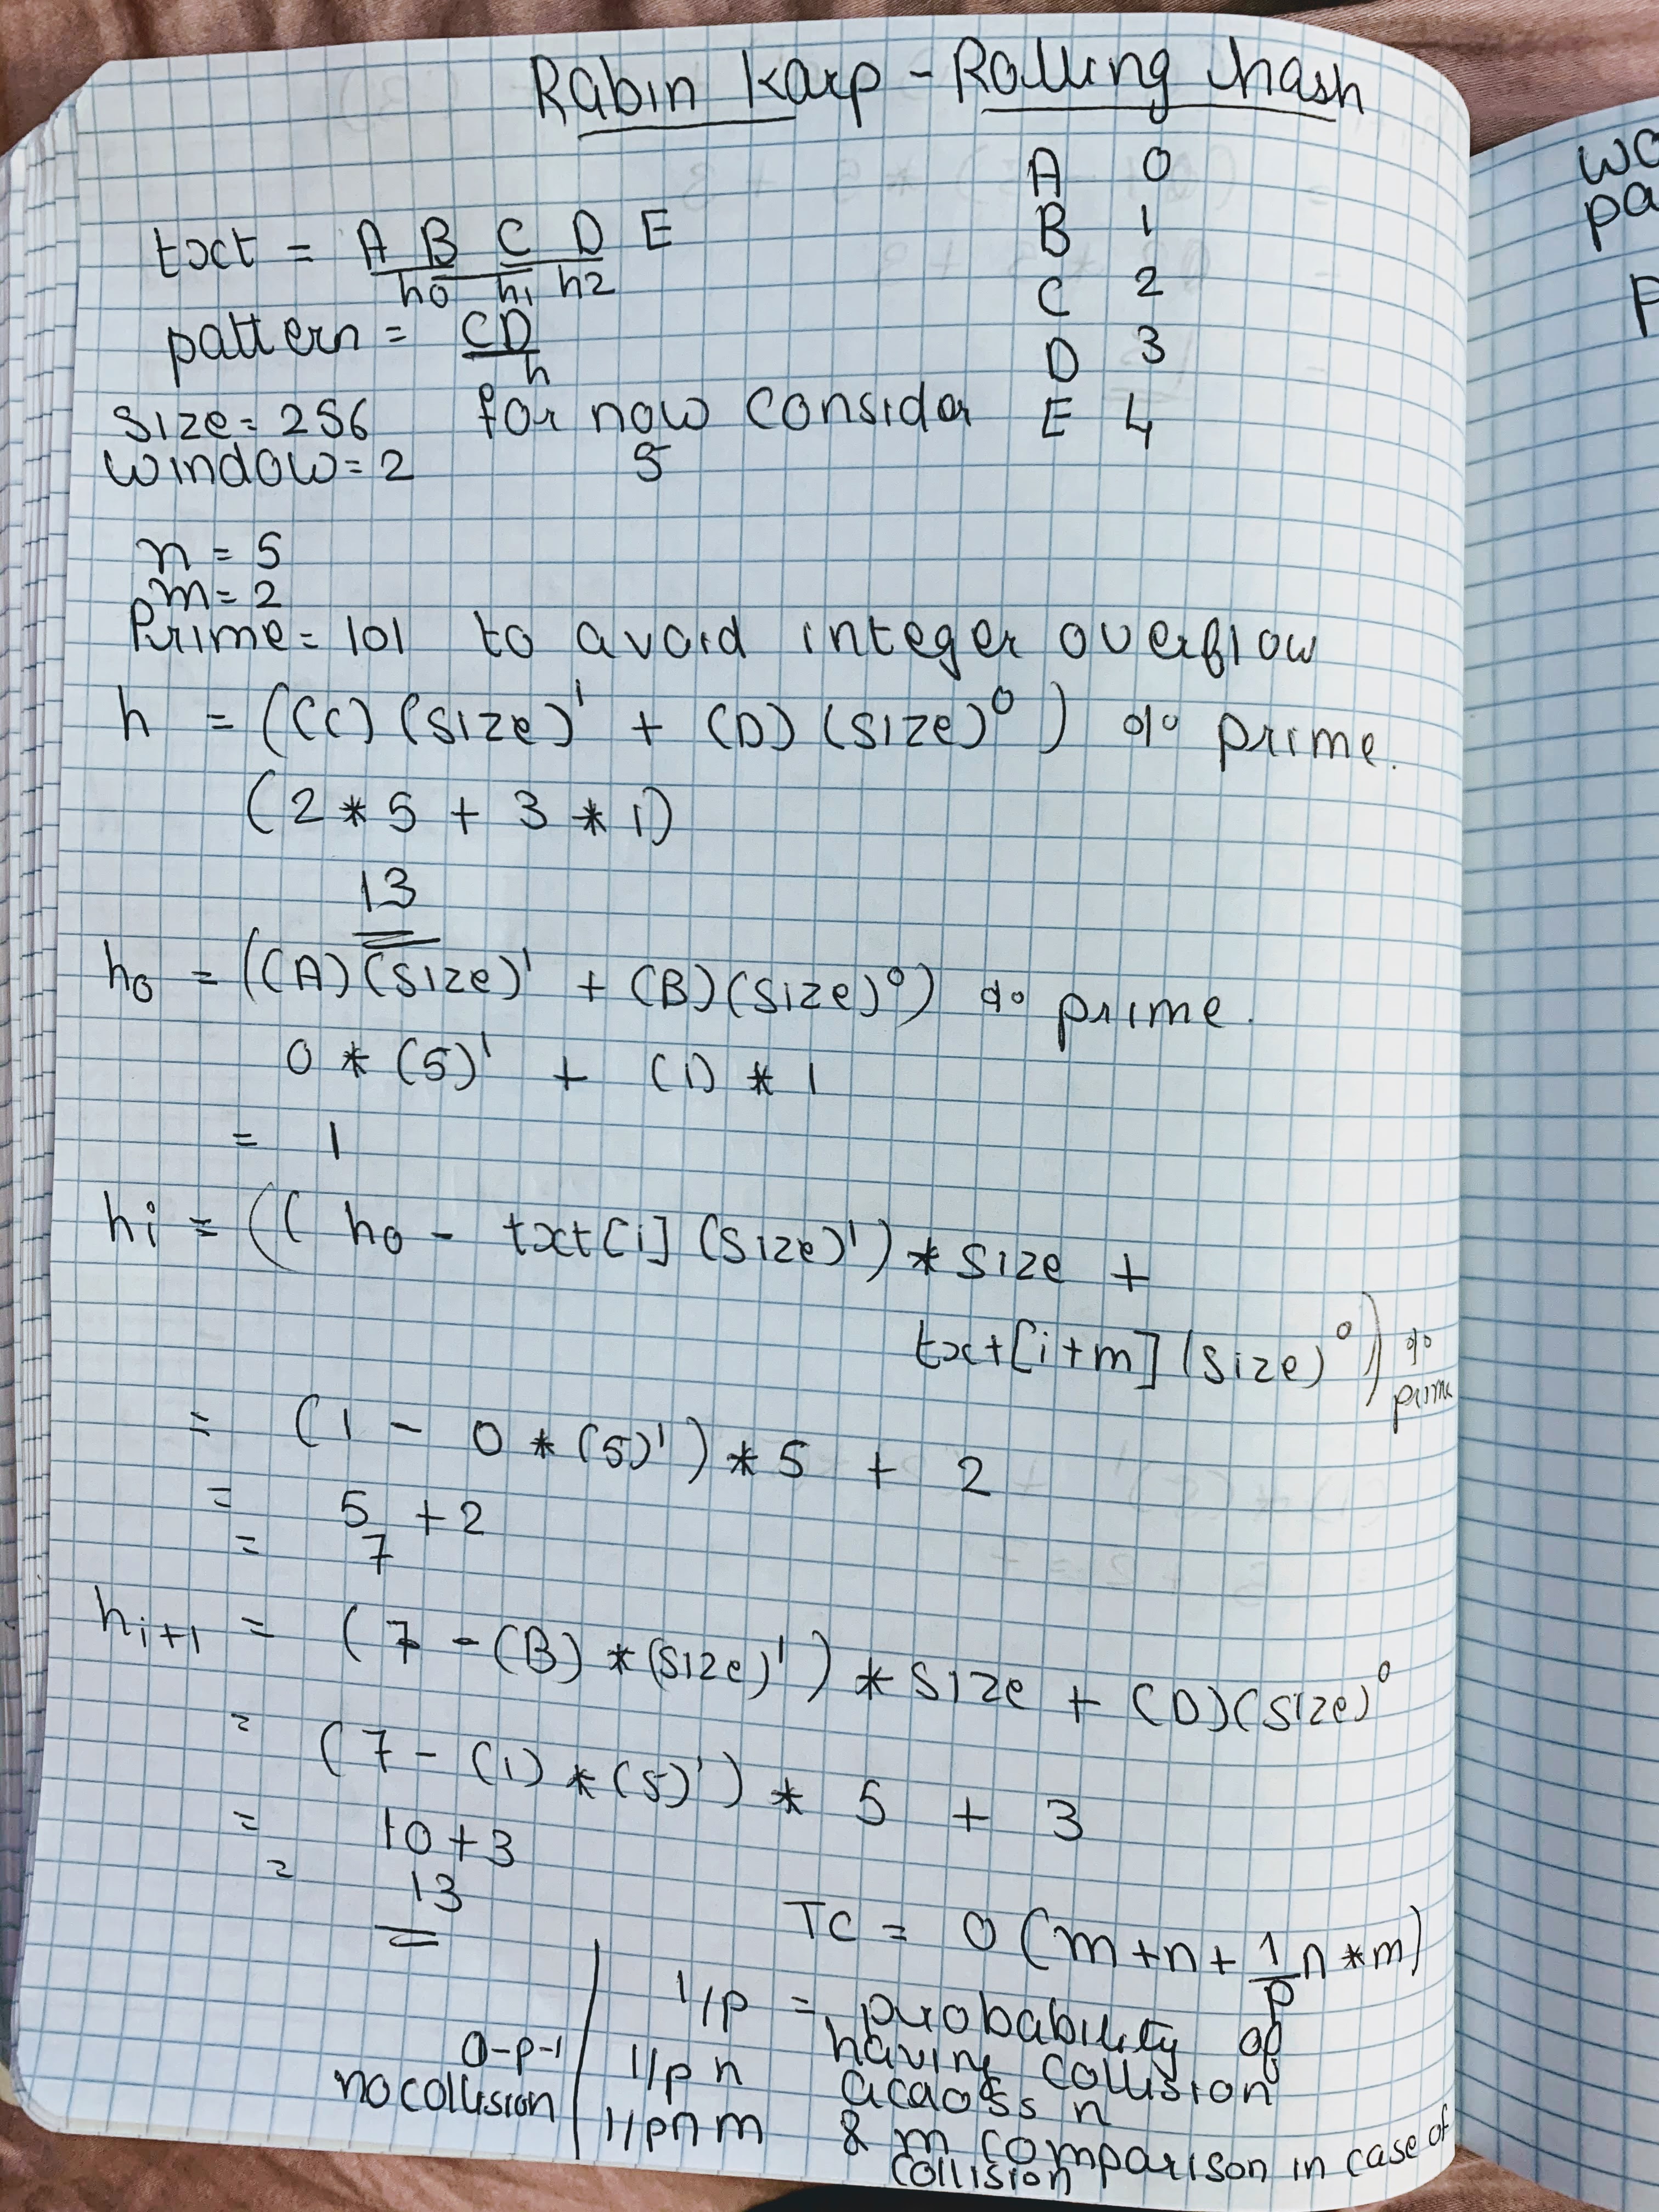 Rabin Karp - Rolling hash
A 0
B 1
C 2
D 3
E 4
txt = A B C D E
h0 h1 h2
pattern = CD
h
size = 256 for now consider
5
window = 2
n = 5
m = 2
Prime = 101 to avoid integer overflow
h = ((C) (size)¹ + (D) (size)⁰ ) % prime.
(2 * 5 + 3 * 1)
13
h0 = ((A) (size)¹ + (B) (size)⁰) % prime.
0 * (5)¹ + (1) * 1
= 1
hi = (( h0 - txt[i] (size)¹) * size +
txt[i+m] (size)⁰) % prime
= (1 - 0 * (5)¹) * 5 + 2
= 5 + 2
= 7
hi+1 = (7 - (B) * (size)¹) * size + (D) (size)⁰
= (7 - (1) * (5)¹) * 5 + 3
= 10 + 3
= 13
TC = O (m + n + 1/p n * m)
1/p = probability of having collision
1/p n across n
1/p n m & m comparison in case of collision
0-p-1
no collision
wo
pa
P